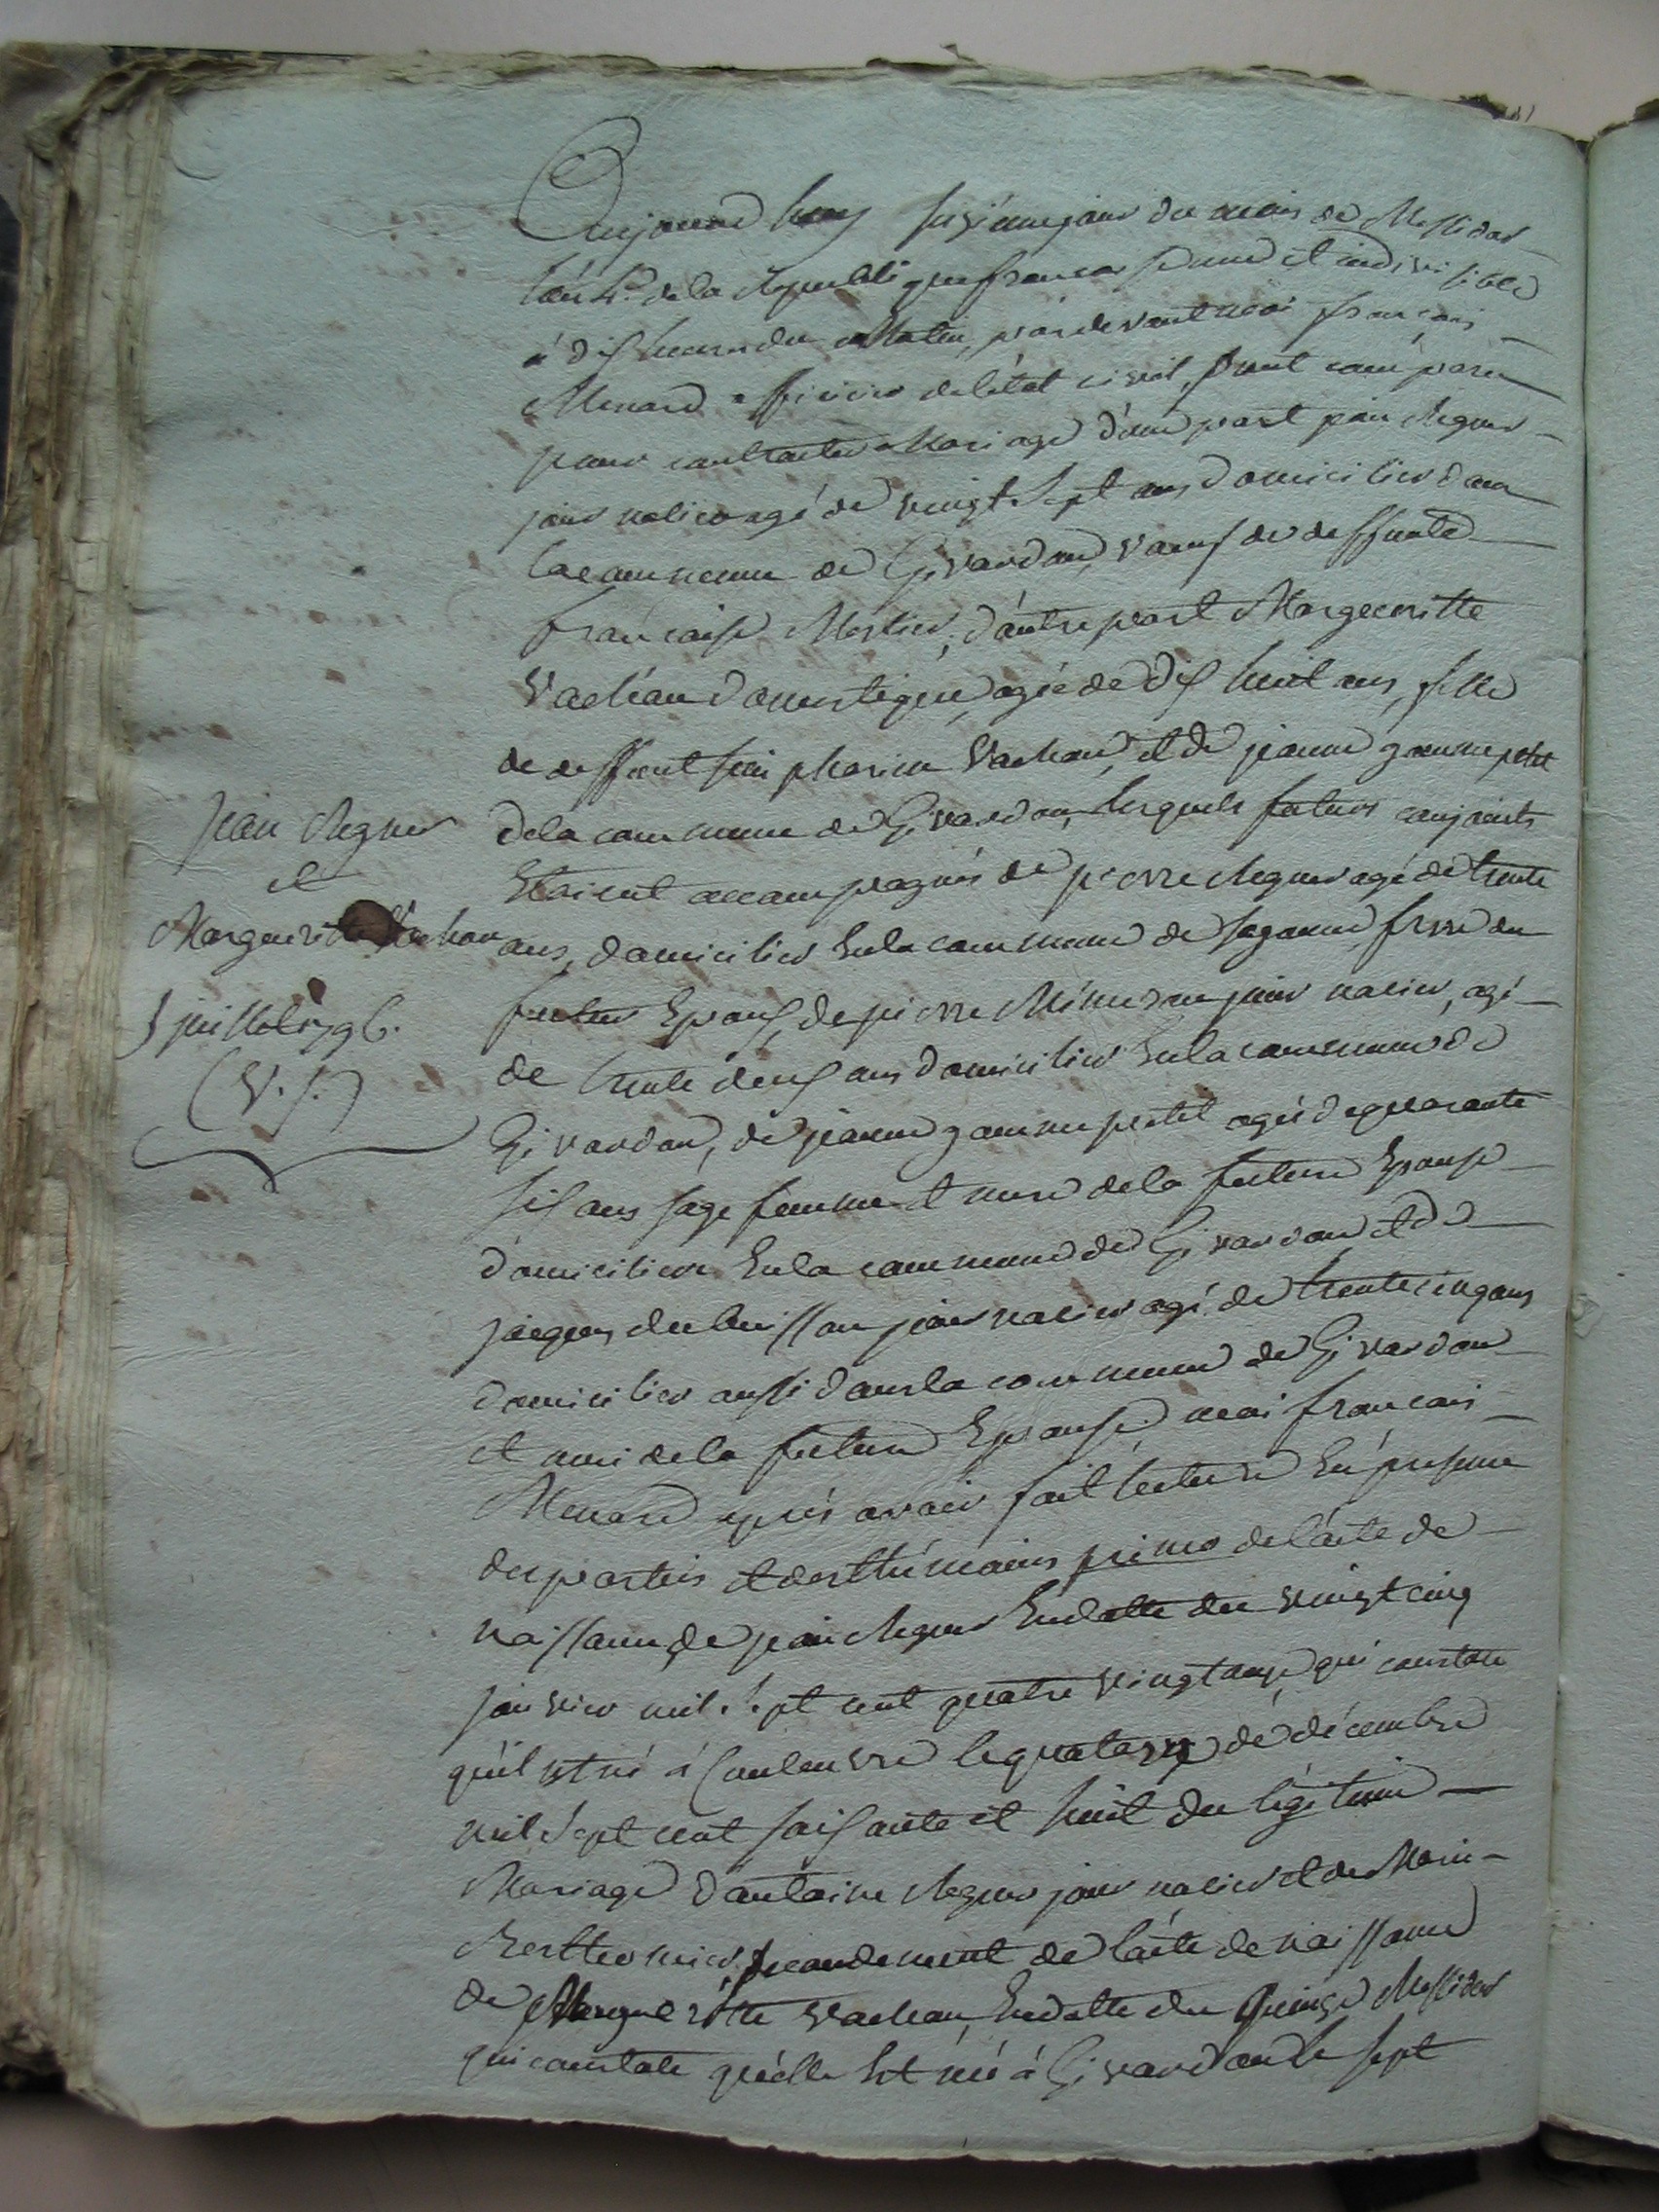 Aujourd huy seziéme jour du mois de Messidor
l'an 4.e de la Republique francaise une et indivisible
à dix heures du Matin, pardevant moi francois
Menard officier de l'état civil, sont comparu
pour contracter Mariage d'une part jean Regner
journalier agé de vingt sept ans domicilier dans
la commune de Givardon, vœuf de deffunte
francaise Merlier, d'autre part Margueritte
Vachéau domestique, agée de dix huit ans, fille
de deffunt Simphorien Vachau, et de jeanne petit
de la commune de Givardon, lesquels futurs conjoints
Etaient accompagnés de pierre Regner agé de trente
ans, domicilier En la commune de Sagonne, frere du
futur Epoux, de pierre journalier, agé
de trente deux ans domicilier En la commune de
Givardon, de jeanne petit agée de quarante
six ans sage femme et mere de la future Epouse
domiciliere En la commune de Givardon et de
jacques dubuisson journalier agé de trente cinq ans
domicilier aussi dans la commune de Givardon
et ami de la future Epouse moi francois
Menard après avoir fait lecture En présence
des parties et des thémoins primo de l'acte de
naissance de jean Regner En datte du vingt cinq
janvier mil sept cent quatre vingt onze, qui constate
qu'il est né à Couleuvre le quatorze de décembre
mil sept cent soixante et huit du légitime
Mariage d'antoine Regner journalier et de Marie
secondement de l'acte de naissance
de Margueritte Vachau, En datte du Quinze Messidor
qui constate qu'elle Est née à Givardon le sept
Jean Regner
et
Marguerite Vachau
3 juillet 1796.
(V. S.)